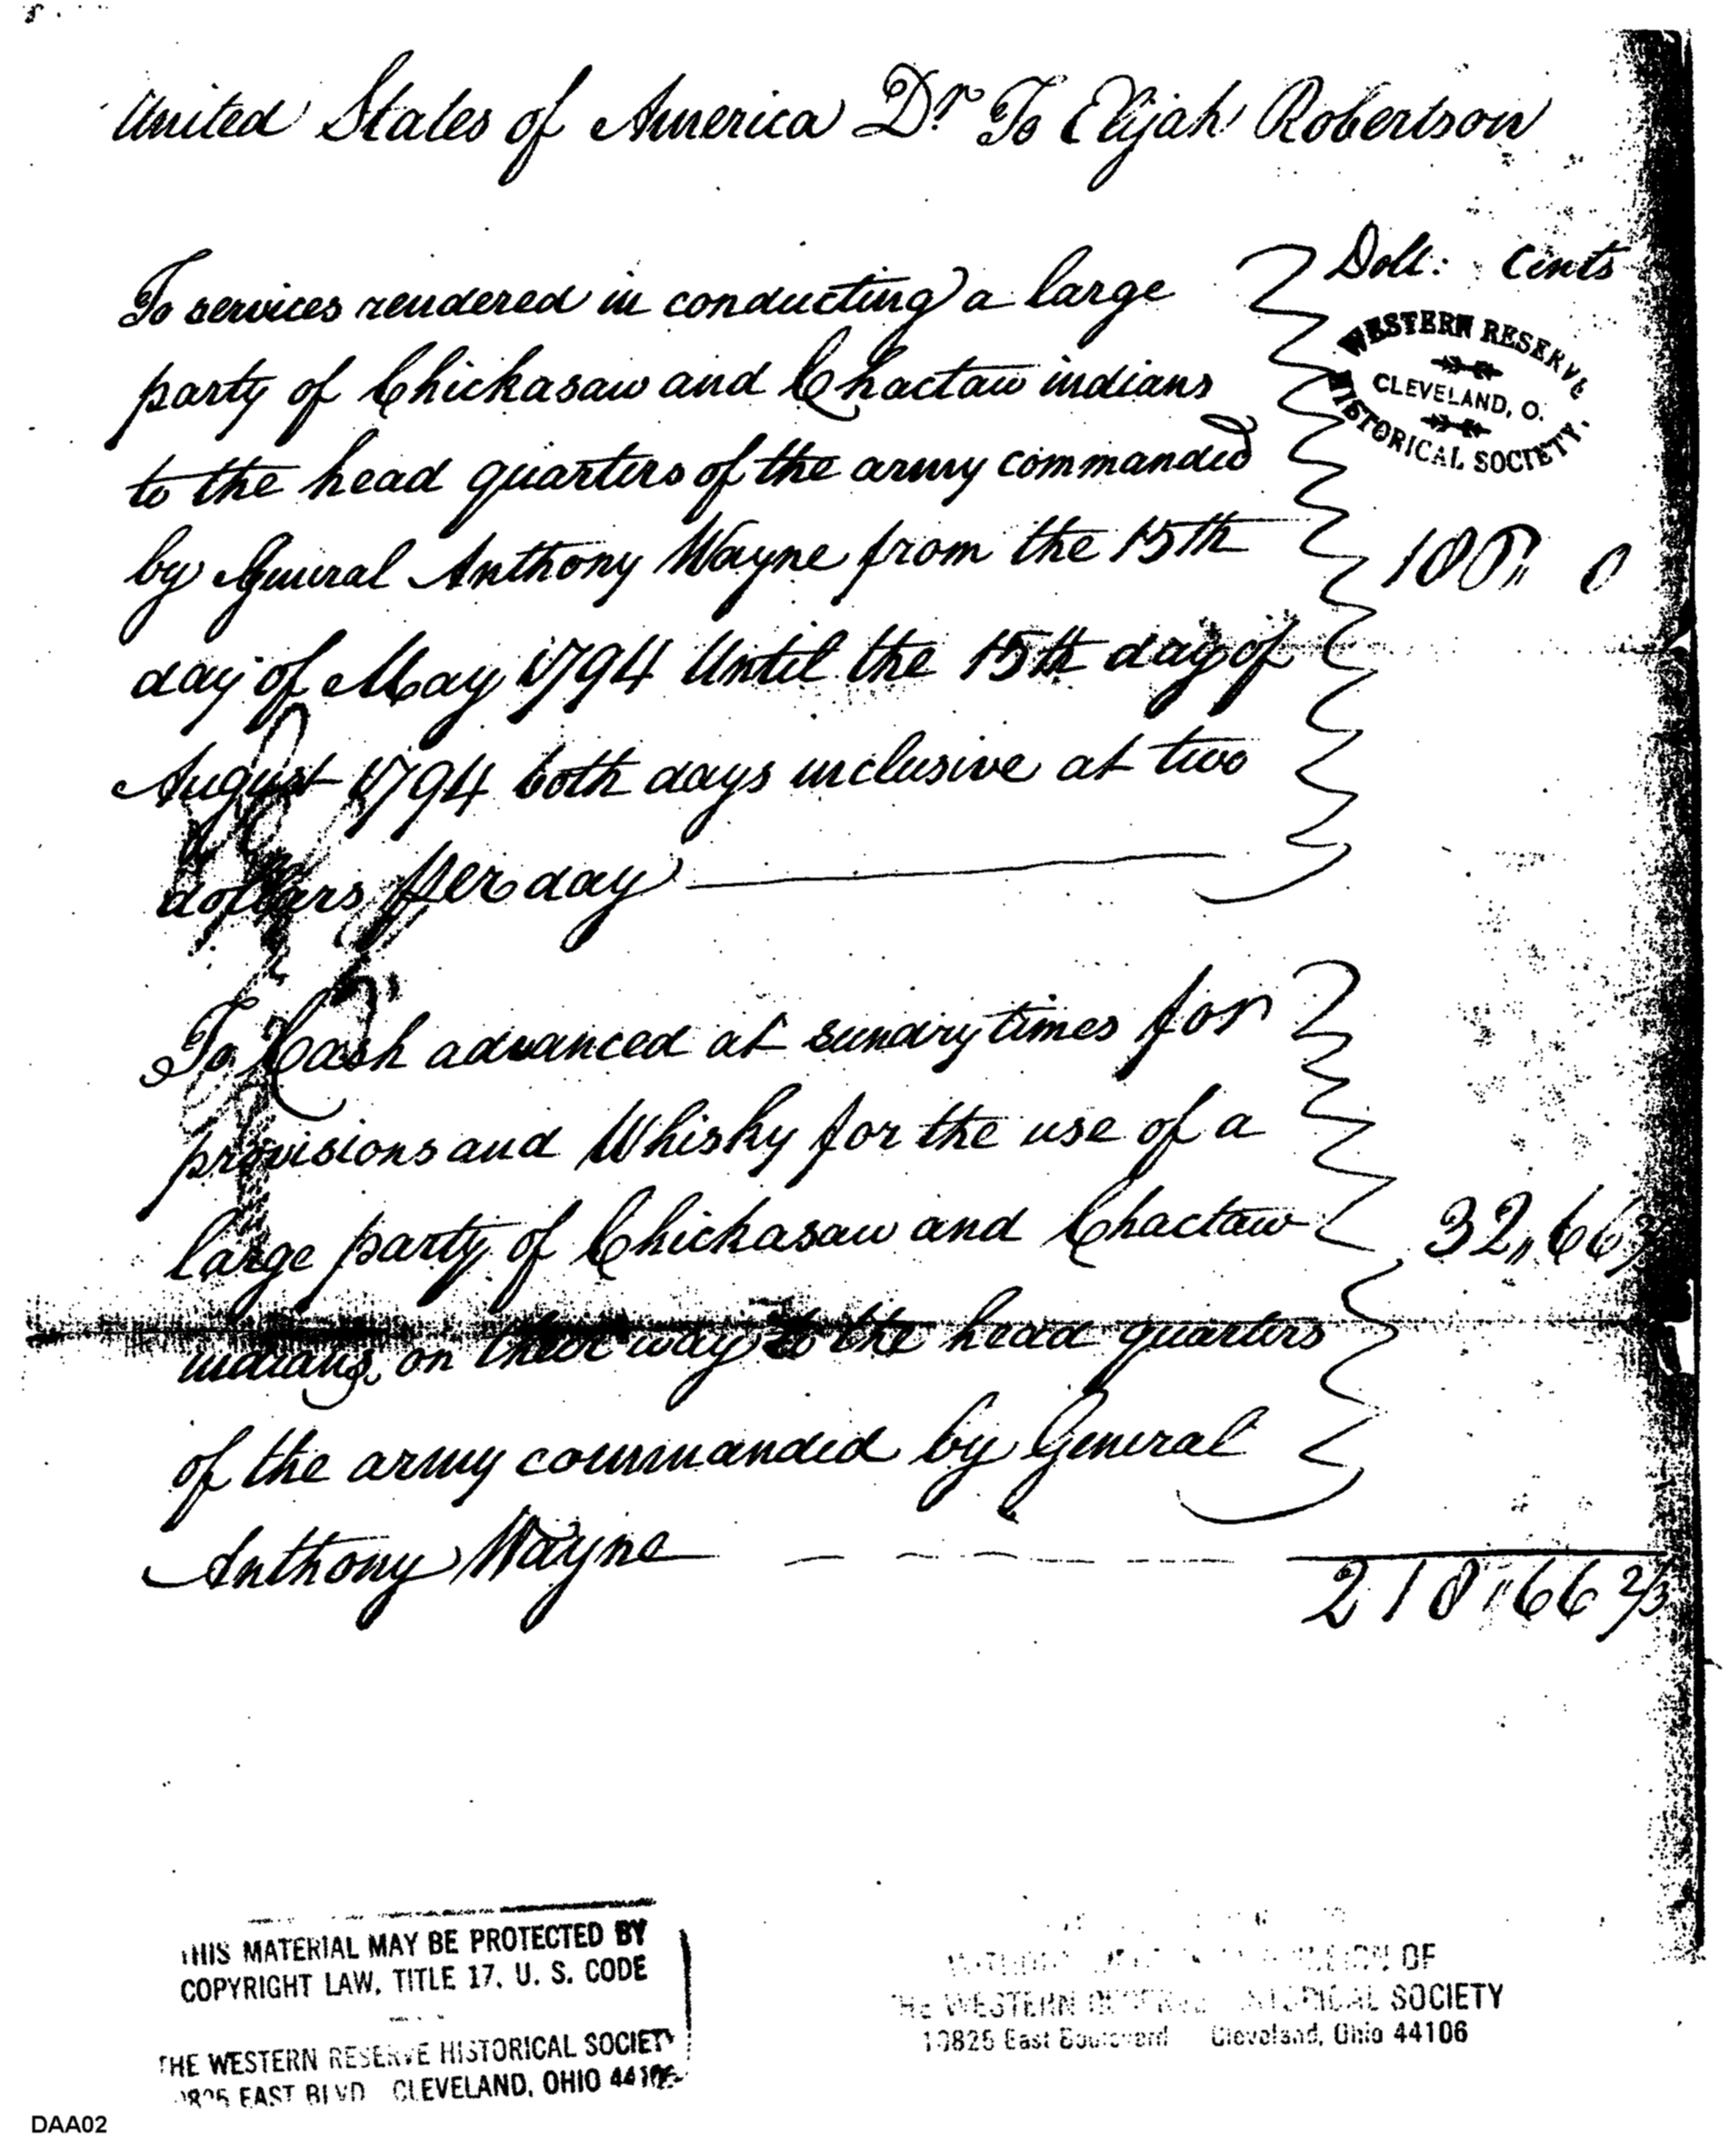 United States of America Dr To Elijah Robertson
Doll: Cents
To services rendered in conducting a large
party of Chickasaw and Chactaw indians
to the head quarters of the army commanded
by General Anthony Wayne from the 15th
186,, 0
day of May 1794 Until the 15th day of
August 1794 both days inclusive at two
dollars per day
To Cash advanced at sundry times for
provisions and Whisky for the use of a
large party of Chickasaw and Chactaw
32,,66 2/3
indians, on their way to the head quarters
of the army commanded by General
Anthony Wayne
218,,66 2/3
WESTERN RESERVE
CLEVELAND, O.
HISTORICAL SOCIETY.
THIS MATERIAL MAY BE PROTECTED BY
COPYRIGHT LAW, TITLE 17, U. S. CODE
THE WESTERN RESERVE HISTORICAL SOCIETY
10825 EAST BLVD CLEVELAND, OHIO 44106
OF
THE WESTERN RESERVE HISTORICAL SOCIETY
10825 East Boulevard Cleveland, Ohio 44106
DAA02